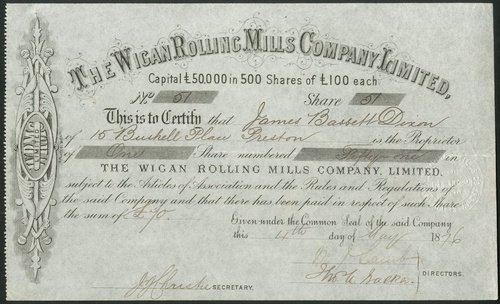 THE WIGAN ROLLING MILLS COMPANY, LIMITED,
Capital £50,000 in 500 Shares of £100 each
No 51 Share 51
This is to Certify that James Bassett Dixon
of 15 Bushell Place Preston is the Proprietor
of One Share numbered Fifty-one in
THE WIGAN ROLLING MILLS COMPANY, LIMITED.
subject to the Articles of Association and the Rules and Regulations of
the said Company and that there has been paid in respect of such Share
the sum of £70.
Given under the Common Seal of the said Company
this 4th day of May 1876
SECRETARY.
DIRECTORS.